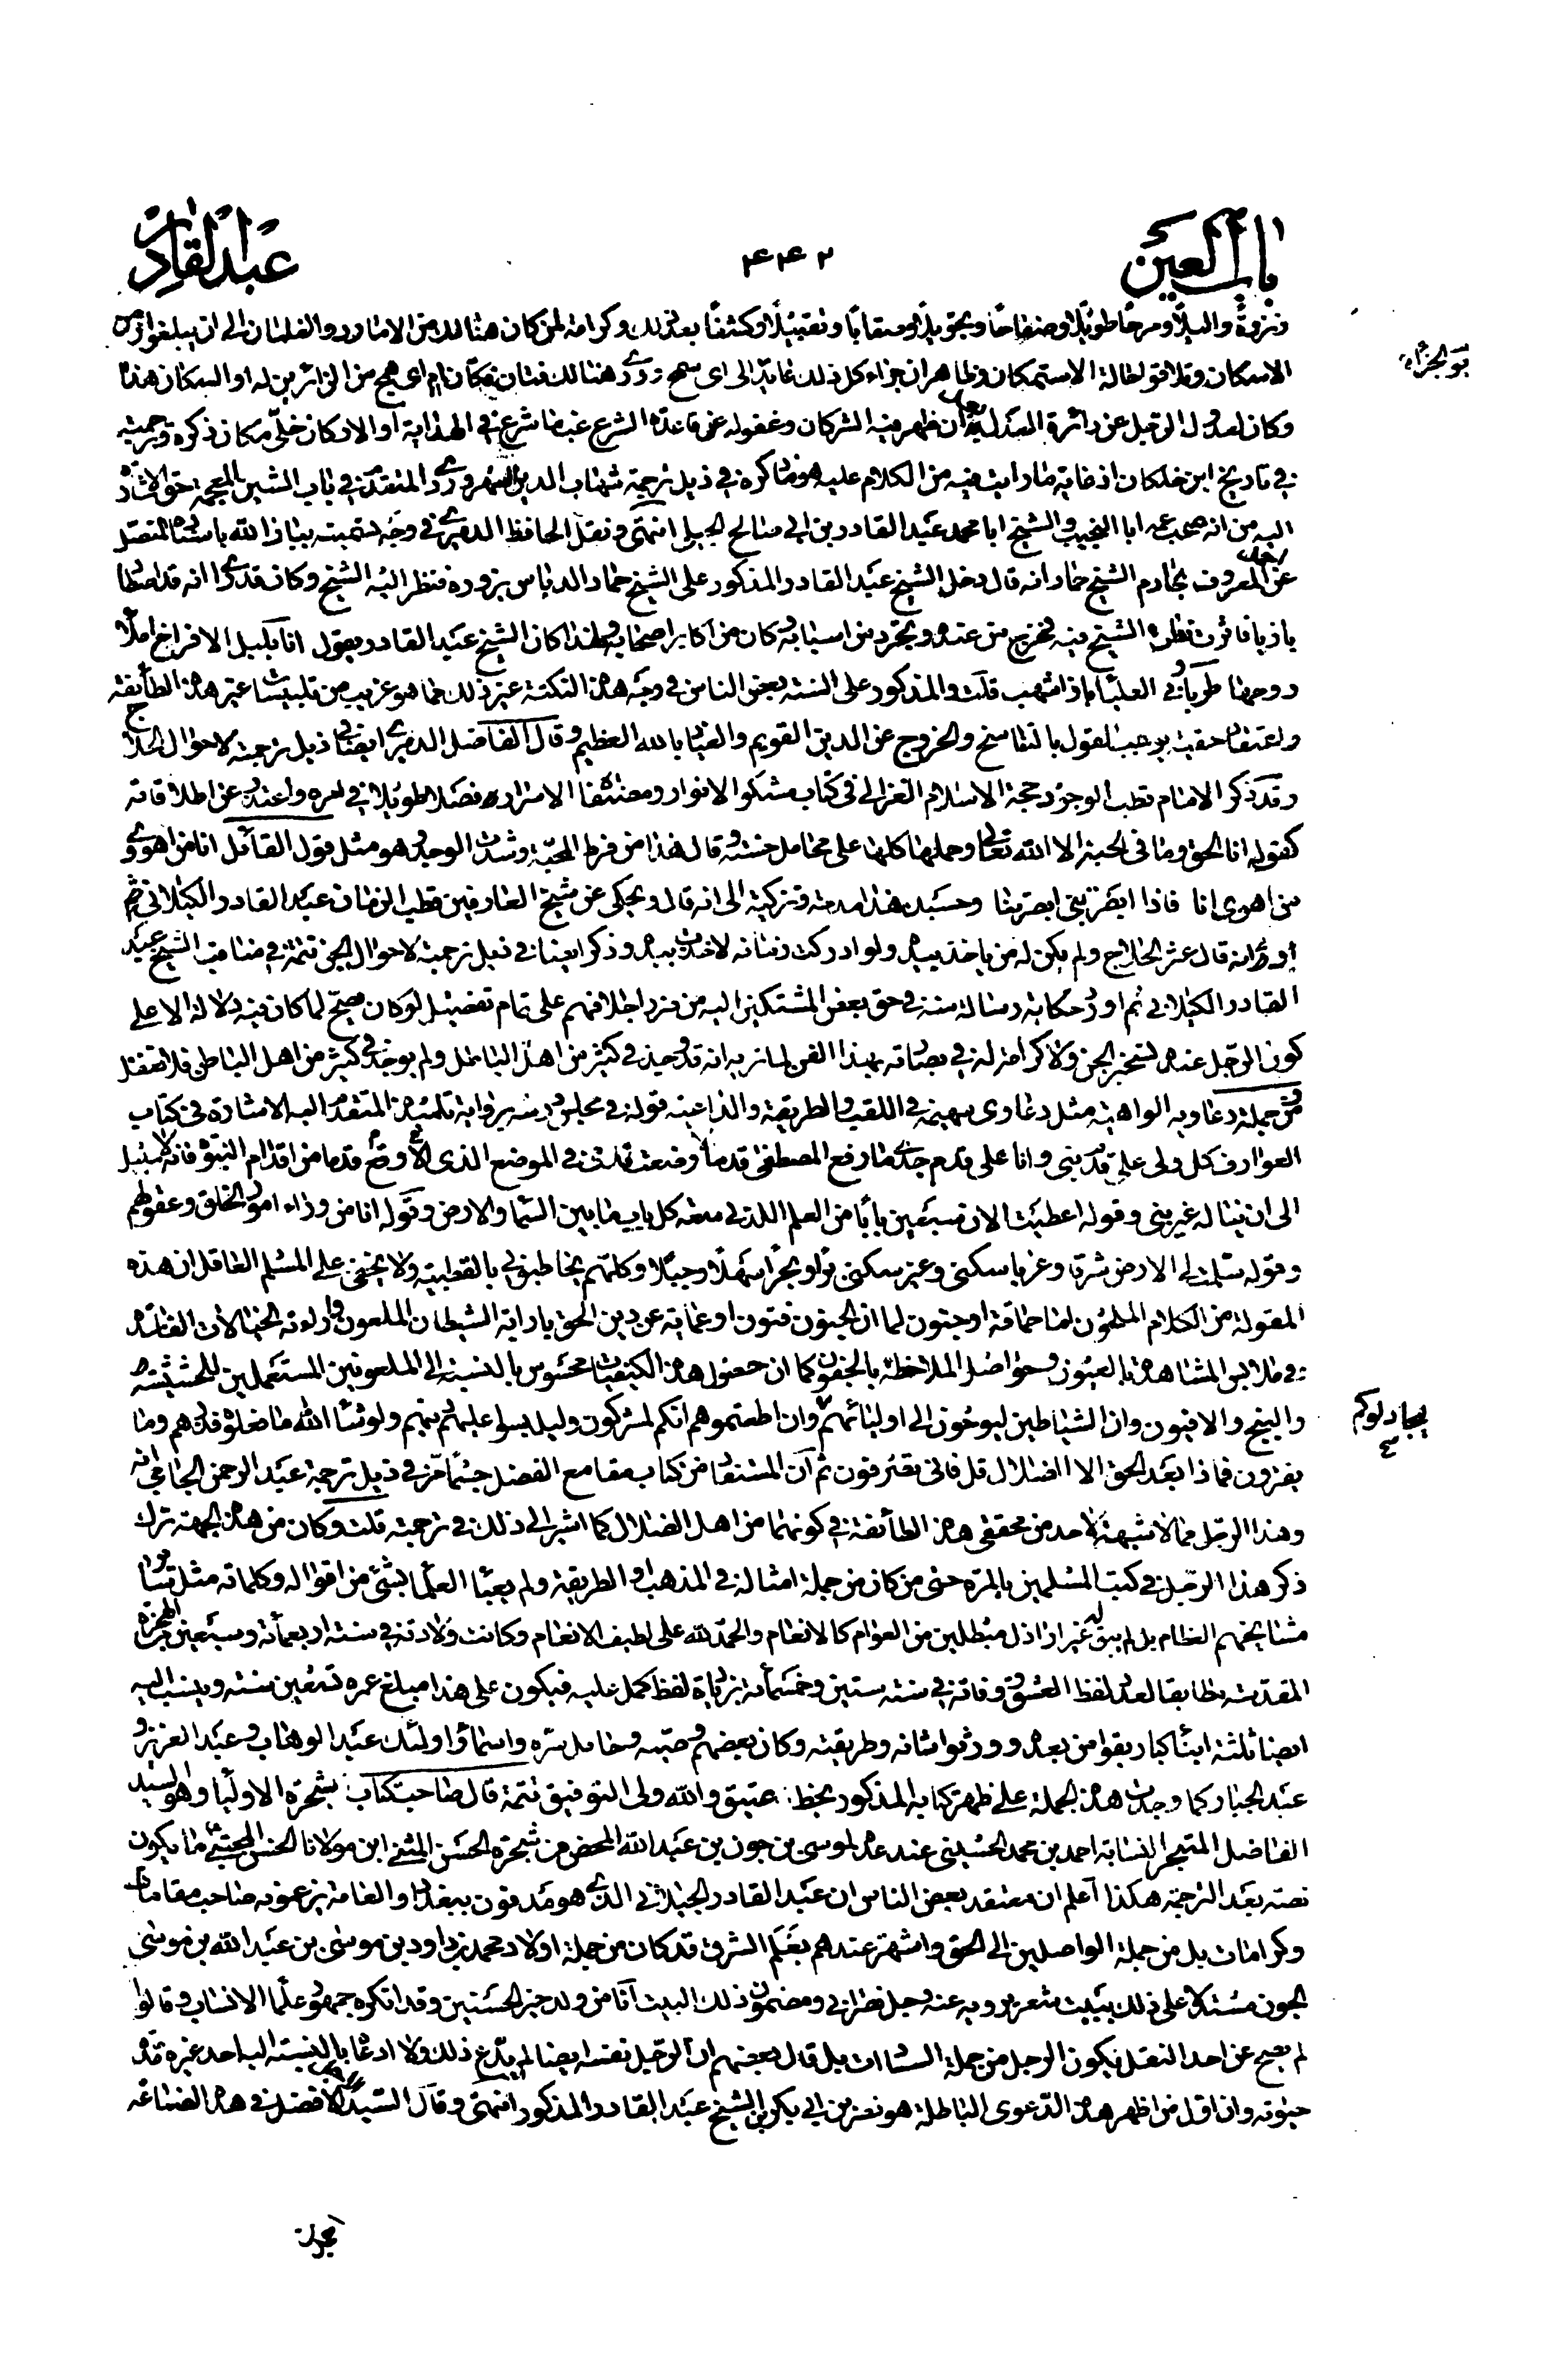 باب العين
٤٤٢
عبد القادر
الاسكان وظاهر ان جزاء كل ذلك عايد الى اى هنالك او السكان هذا
وكان لعدول الرجل عن دائرة العدل ان ظهر منه الشركان وغفوله عن قاعدة الشرع خلى مكان ذكره وترجمته
في تاريخ ابن خلكان اذ غاية ما رايت فيه من الكلام عليه هو ما ذكره في ذيل ترجمة شهاب الدين السهروردى المتقدم في باب الشين المعجمة حق الاشارة
اليه من انه صحب عمه ابا النجيب والشيخ ابا محمد عبد القادر بن ابي صالح الجيلي انتهى ونقل الحافظ الدميرى في وجه تسميته بباز الله باسناده المتصل
عن المعروف بخادم الشيخ حماد انه قال دخل الشيخ عبد القادر المذكور على الشيخ حماد الدباس يزوره فنظر اليه الشيخ وكان قد راى انه قد اصطا
بازيا فاثرت نظرة الشيخ فيه فخرج من عنده وتجرد من اسبابه وكان من اكابر اصحابه ولهذا كان الشيخ عبد القادر يقول انا بلبل الافراح املأ
دوحها طربا وفي العليا باز اشهب قلت والمذكور على السنة بعض الناس في وجه هذه النكتة غير ذلك مما هو غريب من تلبيسات هذه الطائفة
واعتقاد حقيته يوجب القول بالتناسخ والخروج عن الدين القويم والعياذ بالله العظيم وقال الفاضل الدميرى ايضا في ذيل ترجمته لاحوال الحلاج
وقد ذكر الامام قطب الوجود حجة الاسلام الغزالي في كتاب مشكوة الانوار ومصفاة الاسرار فصلا طويلا في امره واعتذر عن اطلاقاته
كقوله انا الحق وما في الجبة الا الله تعالى وحملها كلها على محامل حسنة وقال هذا من فرط المحبة وشدة الوجد وهو مثل قول القائل انا من اهوى و
من اهوى انا فاذا ابصرتني ابصرتنا وحسبك هذا مدحة وتزكية الى انه قال ويحكى عن شيخ العارفين قطب الزمان عبد القادر الكيلاني
انه قال عثر الحلاج ولم يكن له من ياخذ بيده ولو ادركت زمانه لاخذت بيده وذكر ايضا في ذيل ترجمته لاحوال الجن تتمة في مناقب الشيخ عبد
القادر الكيلاني ثم اورد حكاية رسالة منه في حق بعض المشتكين اليه من على تمام تفضيل لو كان صح لما كان فيه دلالة الا على
كون الرجل عنده تسخير الجن ولا كرامة له في بصارته بهذا الفن لما نريه انه قد وجد في كثير من اهل الباطل ولم يوجد في كثير من اهل الباطن فلا تغفل
ومن جملة دعاويه الواهية مثل دعاوى سهيمه في اللقب والطريقة والداعية قوله في مجلس درسه برواية تلميذه المتقدم اليه الاشارة في كتاب
العوارف كل ولى على قدم نبى وانا على قدم جدى ما رفع المصطفى قدما الا وضعت قدمي في الموضع الذى رفع قدما من اقدام النبوة فانه لا سبيل
الى ان يناله غير نبي وقوله اعطيت الان سبعين بابا من العلم اللدني سعة كل باب ما بين السماء والارض وقوله انا من وراء امور الخلق وعقولهم
وقوله سلمت لى الارض شرقا وغربا سكنى وغير سكنى برا وبحرا سهلا وجبلا وكلهم يخاطبني بالقطبية ولا يخفى على المسلم العاقل ان هذه
المقولة من الكلام الملحون لها حماقة او جنون لما ان الجنون فنون او غاية عن دين الحق باراية الشيطان الملعون واراءته الخيالات الفاسدة
في ملابس المشاهدة بالعيون كما ان حصول هذه الكيفيات محسوس بالنسبة الى الملعونين المستعملين للحشيشة
والبنج والافيون وان الشياطين ليوحون الى اوليائهم وان اطعتموهم انكم لمشركون وليلبسوا عليهم دينهم ولو شاء الله ما فعلوه فذرهم وما
يفترون فماذا بعد الحق الا الضلال قل فانى تصرفون ثم ان المستفاد من كتاب مقامع الفضل حسبما مر في ذيل ترجمة عبد الرحمن الجامي انه
وهذا الرجل مما لا شبهة لاحد من محققى هذه الطائفة في كونهما من اهل الضلال كما اشير الى ذلك في ترجمته قلت وكان من هذه الجهة ترك
ذكر هذا الرجل في كتب المسلمين بالمرة حتى من كان من جملة امثاله في المذهب او الطريقة ولم يعبأ العلماء بشئ من اقواله وكلماته مثل
مشايخهم العظام بل لم يبق له غير اراذل مبطلين من العوام كالانعام والحمد لله على لطيف الانعام وكانت ولادته في سنة اربعمائة وسبعين من الهجرة
المقدسة مطابقا لعدد لفظ العشق ووفاته في سنة ستين وخمسمائة بزيادة لفظ كمل عليه فيكون على هذا مبلغ عمره تسعين سنة وينسب اليه
ايضا ثلثة ابناء كبار بقوا من بعده وورثوا شانه وطريقته وكان بعضهم وصيه وحامل سره واسماؤ اولئك عبد الوهاب وعبد العزيز و
عبد الجبار كما وجدت هذه الجملة على ظهر كتابه المذكور بخط عتيق والله ولى التوفيق تتمة قال صاحب كتاب شجرة الاولياء وهو السيد
الفاضل المتبحر النسابة احمد بن محمد الحسيني عند عده لموسى بن جون بن عبد الله المحض من شجرة الحسن المثنى ابن مولانا الحسن المجتبى ما يكون
نصه بعد الترجمة هكذا اعلم ان معتقد بعض الناس ان عبد القادر الجيلاني الذى هو مدفون ببغداد والعامة يزعمونه صاحب مقامات
وكرامات بل من جملة الواصلين الى الحق واشتهر عندهم بغيلم الشرق قد كان من جملة اولاد محمد بن داود بن موسى بن عبد الله بن موسى
الجون مستدلا على ذلك ببيت شعر يرويه عنه رجل نصراني ومضمون ذلك البيت انا من ولد خير الحسنين وقد انكره جمهور علماء الانساب وقالوا
لم يصح عن احد النقل بكون الرجل من جملة السادات بل قال بعضهم ان الرجل نفسه ايضا لم يدع ذلك ولا ادعاه بالنسبة اليه احد غيره مدة
حيوته وان اول من اظهر هذه الدعوى الباطلة هو نصر بن ابي بكر بن الشيخ عبد القادر المذكور انتهى وقال السيد الافضل في هذه الصناعة
يجادلوكم